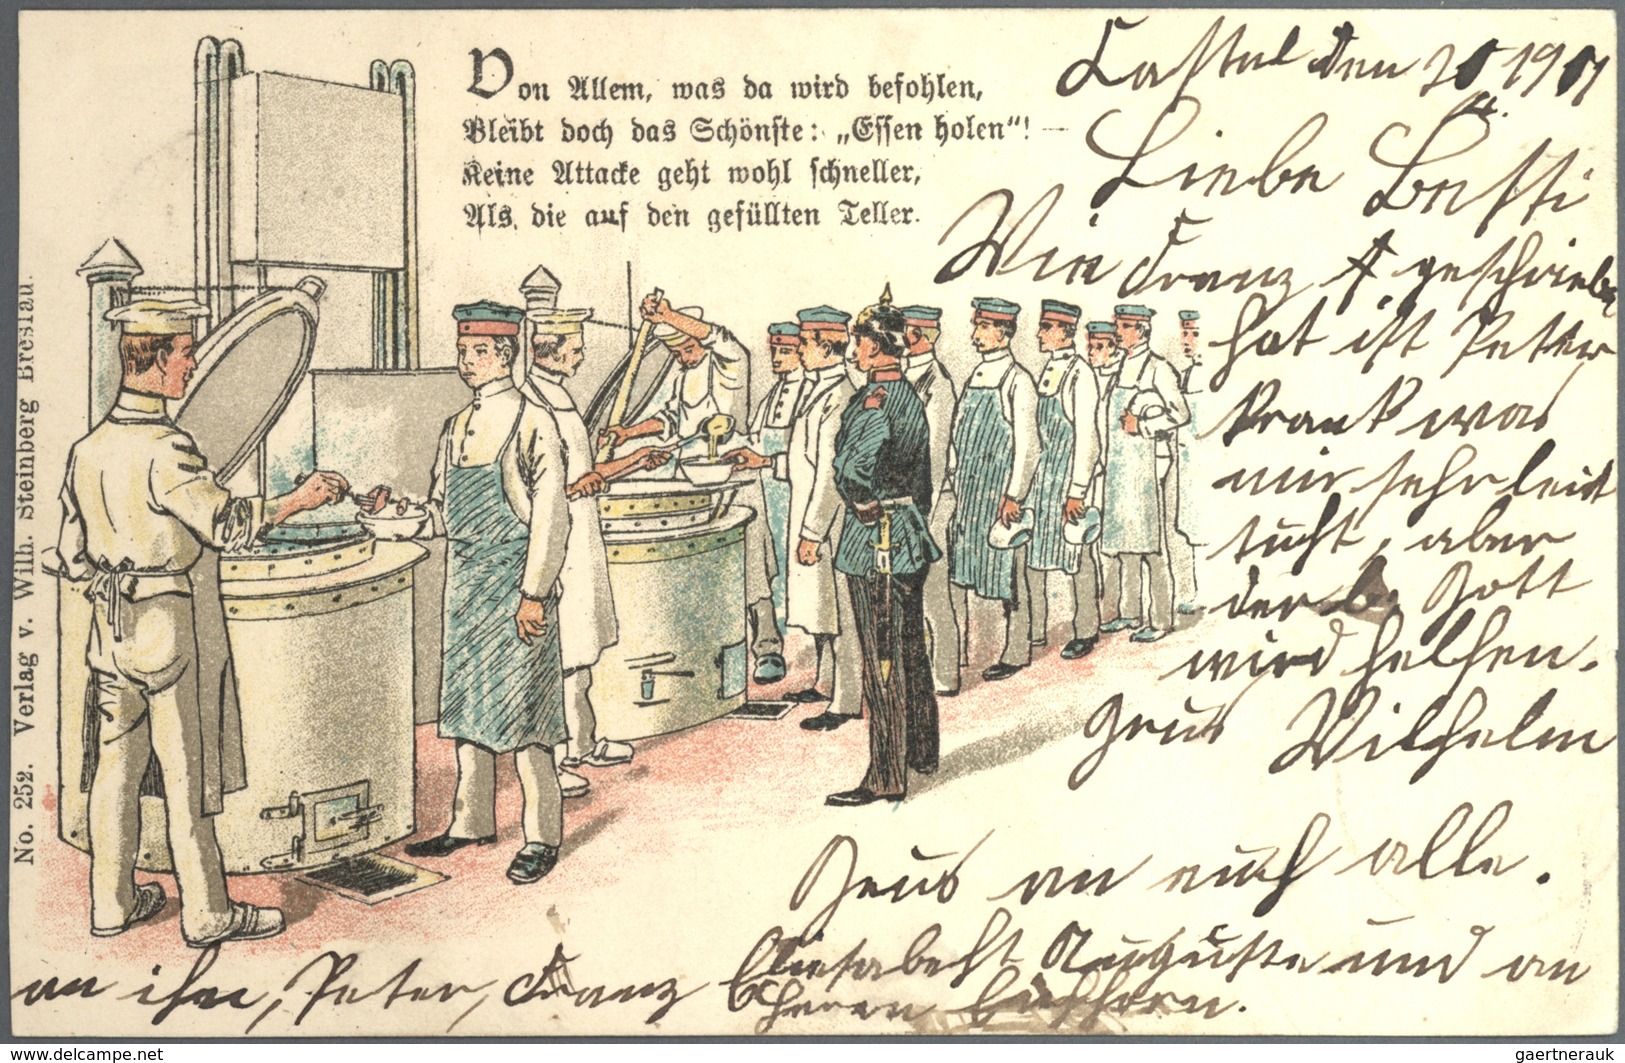 Von Allem, was da wird befohlen,
Bleibt doch das Schönste: „Essen holen“! —
Keine Attacke geht wohl schneller,
Als die auf den gefüllten Teller.
No. 252. Verlag v. Wilh. Steinberg Breslau.
Castel den 1901
Liebe Betti
Wie Franz geschrieben
hat ist Peter
krank was
mir sehr leid
tuht, aber
der l. Gott
wird helfen.
Grus Wilhelm
Grus an euch alle.
an ihn, Peter, Franz Eliesabeht Auguste und an
Herrn
www.delcampe.net
gaertnerauk